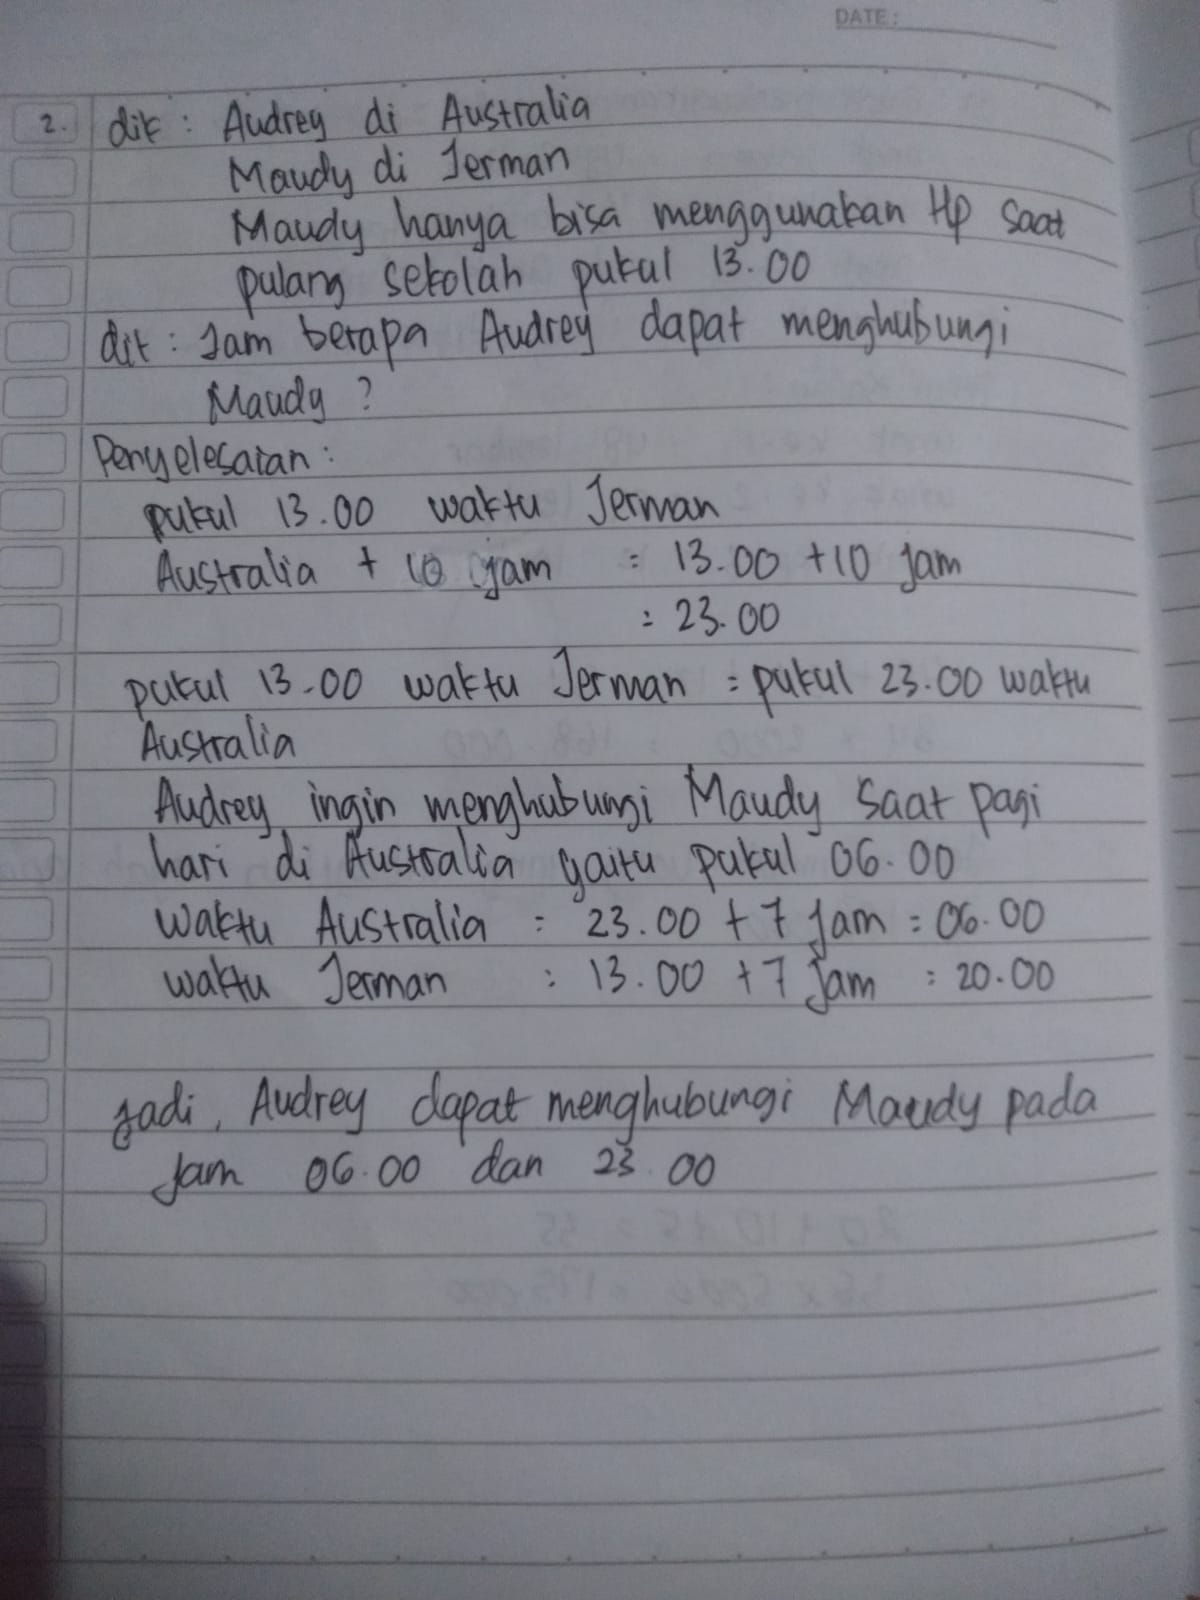 DATE:
2. dik : Audrey di Australia
Maudy di Jerman
Maudy hanya bisa menggunakan Hp saat
pulang sekolah pukul 13.00
dit : Jam berapa Audrey dapat menghubungi
Maudy ?
Penyelesaian :
pukul 13.00 waktu Jerman
Australia + 10 jam = 13.00 + 10 jam
= 23.00
pukul 13.00 waktu Jerman = pukul 23.00 waktu
Australia
Audrey ingin menghubungi Maudy saat pagi
hari di Australia yaitu pukul 06.00
waktu Australia = 23.00 + 7 jam = 06.00
waktu Jerman : 13.00 + 7 jam : 20.00
Jadi, Audrey dapat menghubungi Maudy pada
jam 06.00 dan 23.00